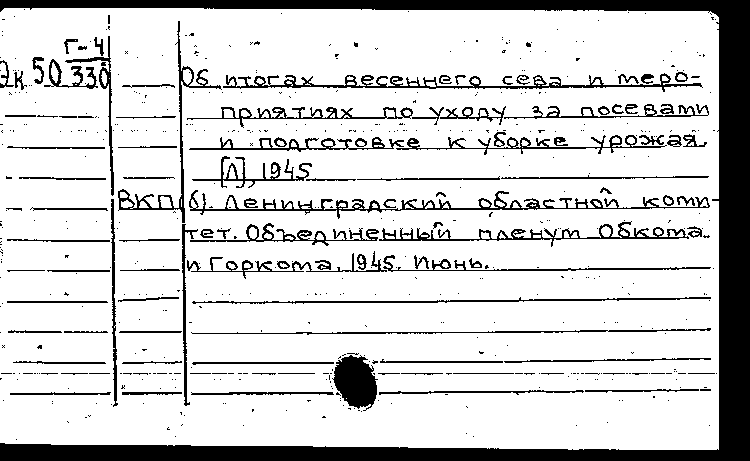 Г-4
Эк 50 330
Об итогах весеннего сева и меро-
приятиях по уходу за посевами
и подготовке к уборке урожая.
[Л], 1945
ВКП(б). Ленинградский областной коми-
тет. Объединенный пленум Обкома
и Горкома. 1945. Июнь.